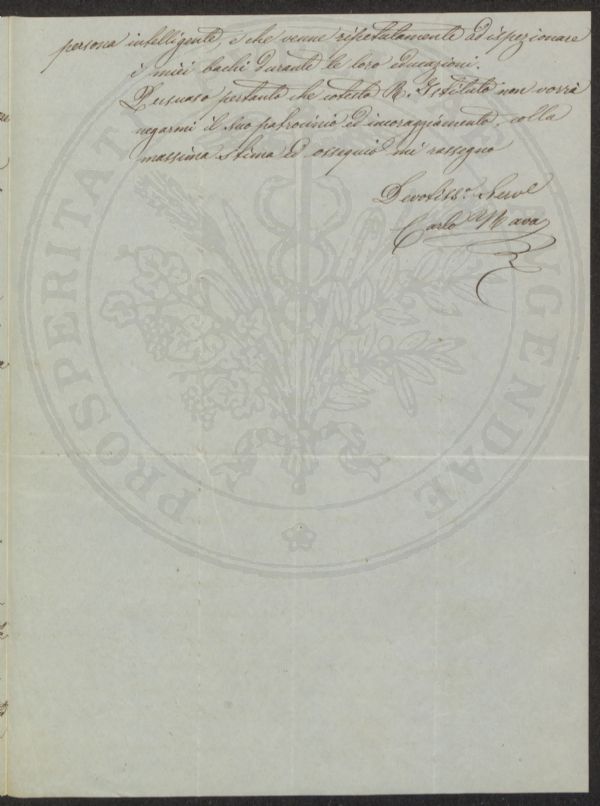 persona intelligente, e che venne ripetutamente ad ispezionare
i miei bachi durante le loro educazioni.
Persuaso pertanto che cotesto R. Istituto non vorrà
negarmi il suo patrocinio ed incoraggiamento, colla
massima stima ed ossequio mi rassegno
Devotiss.o Serv.e
Carlo
PROSPERITATI AUGENDAE